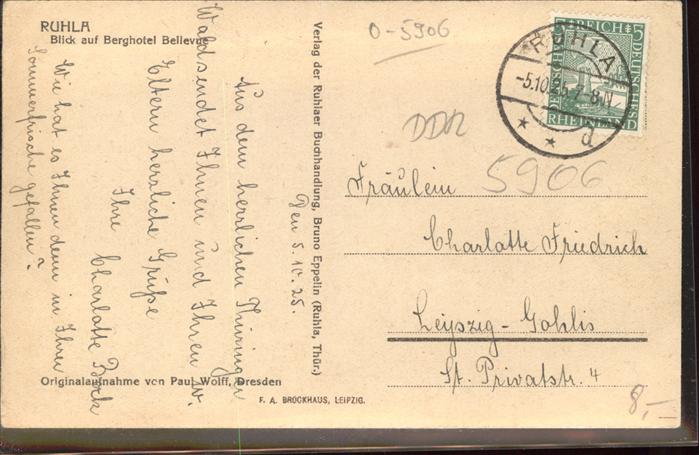 RUHLA
Blick auf Berghotel Bellevue
Verlag der Ruhlaer Buchhandlung, Bruno Eppelin (Ruhla, Thür.)
Originalaufnahme von Paul Wolff, Dresden
F. A. BROCKHAUS, LEIPZIG.
Den 5.10.25.
Aus dem herrlichen Thüringer
Wald sendet Ihnen und Ihren w.
Eltern herzliche Grüße
Ihre
Charlotte Bock
Wie hat es Ihnen denn in Ihrer
Sommerfrische gefallen?
O-5906
DDR
5906
RUHLA
-5.10.25.7-8.N
d
DEUTSCHES REICH
5
5
RHEINLAND
Fräulein
Charlotte Friedrich
Leipzig-Gohlis
St. Privatstr. 4
8,-